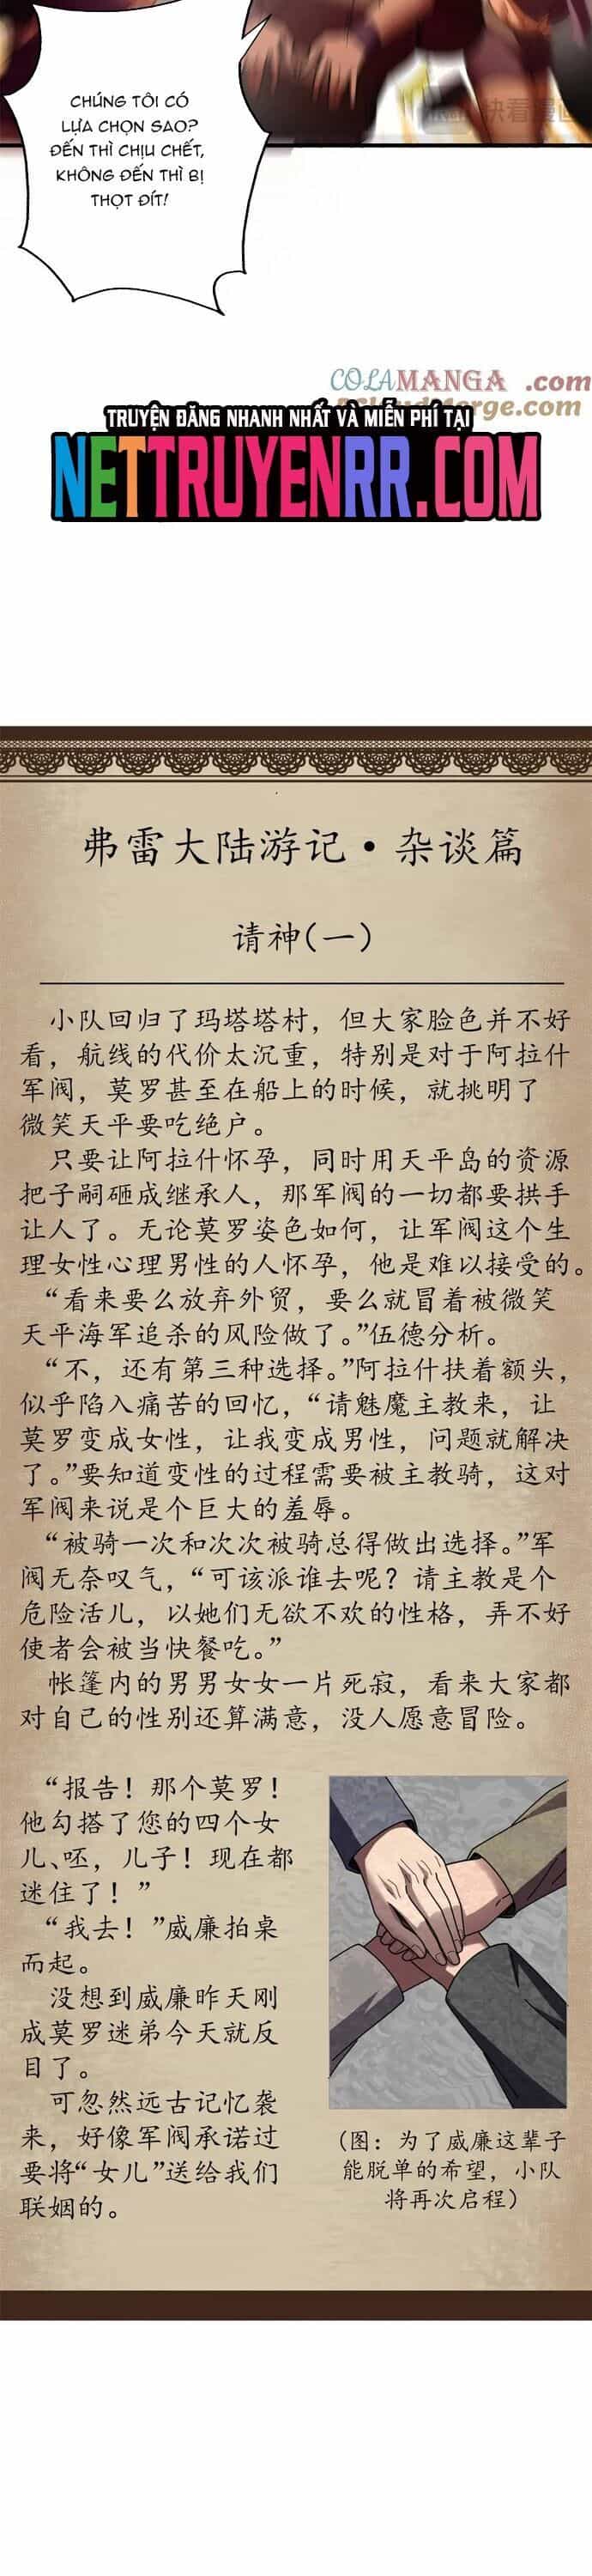 快看漫画
CHÚNG TÔI CÓ
LỰA CHỌN SAO?
ĐẾN THÌ CHỊU CHẾT,
KHÔNG ĐẾN THÌ BỊ
THỌT ĐÍT!
COLAMANGA .com
Merge.com
TRUYỆN ĐĂNG NHANH NHẤT VÀ MIỄN PHÍ TẠI
NETTRUYENRR.COM
弗雷大陆游记·杂谈篇
请神(一)
小队回归了玛塔塔村，但大家脸色并不好
看，航线的代价太沉重，特别是对于阿拉什
军阀，莫罗甚至在船上的时候，就挑明了
微笑天平要吃绝户。
只要让阿拉什怀孕，同时用天平岛的资源
把子嗣砸成继承人，那军阀的一切都要拱手
让人了。无论莫罗姿色如何，让军阀这个生
理女性心理男性的人怀孕，他是难以接受的。
“看来要么放弃外贸，要么就冒着被微笑
天平海军追杀的风险做了。”伍德分析。
“不，还有第三种选择。”阿拉什扶着额头，
似乎陷入痛苦的回忆，“请魅魔主教来，让
莫罗变成女性，让我变成男性，问题就解决
了。”要知道变性的过程需要被主教骑，这对
军阀来说是个巨大的羞辱。
“被骑一次和次次被骑总得做出选择。”军
阀无奈叹气，“可该派谁去呢？请主教是个
危险活儿，以她们无欲不欢的性格，弄不好
使者会被当快餐吃。”
帐篷内的男男女女一片死寂，看来大家都
对自己的性别还算满意，没人愿意冒险。
“报告！那个莫罗！
他勾搭了您的四个女
儿、呸，儿子！现在都
迷住了！”
“我去！”威廉拍桌
而起。
没想到威廉昨天刚
成莫罗迷弟今天就反
目了。
可忽然远古记忆袭
来，好像军阀承诺过
要将“女儿”送给我们
联姻的。
（图：为了威廉这辈子
能脱单的希望，小队
将再次启程）